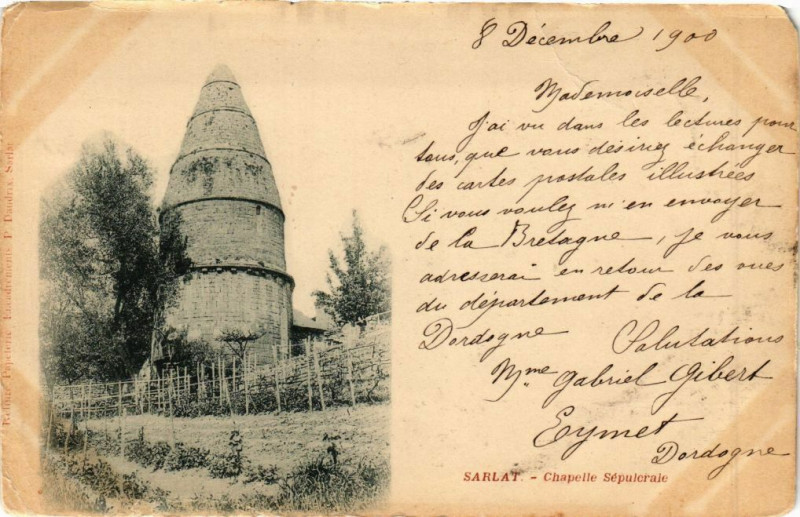 8 Décembre 1900
Mademoiselle,
J'ai vu dans les lectures pour
tous, que vous désirez échanger
des cartes postales illustrées
Si vous voulez m'en envoyer
de la Bretagne, je vous
adresserai en retour des vues
du département de la
Dordogne
Salutations
Mme Gabriel Gibert
Eymet
Dordogne
SARLAT. - Chapelle Sépulcrale
Papeterie, Encadrements, P. Daudrix, Sarlat